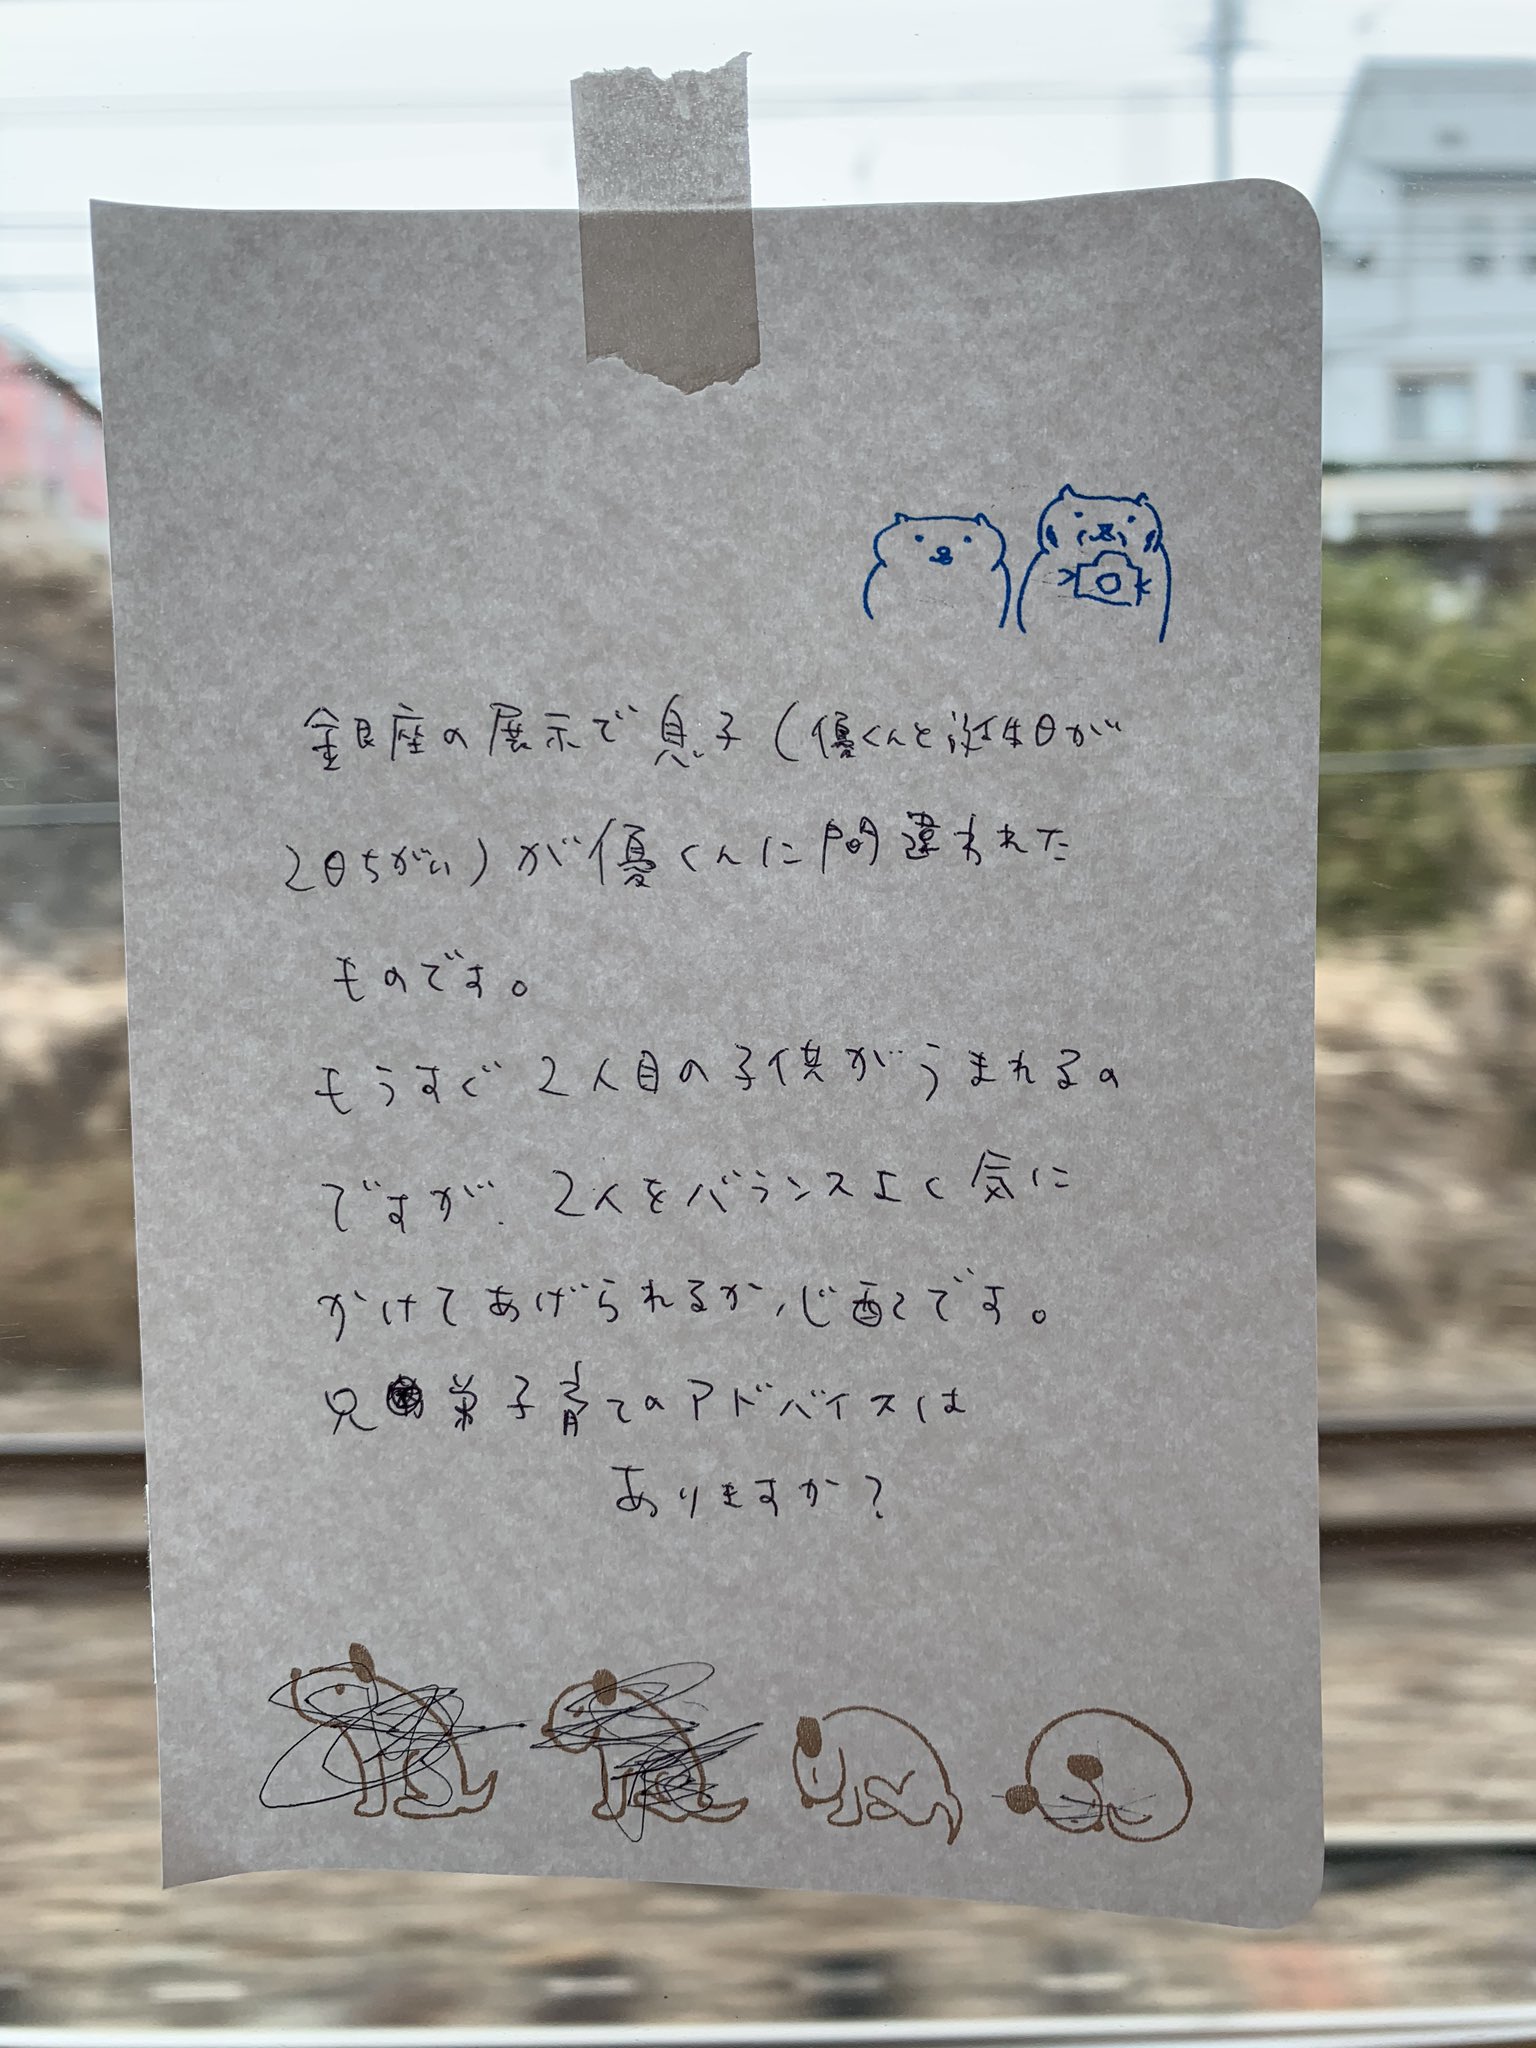 金銀座の展示で息子(優くんと誕生日が
2日ちがい)が優くんに間違われた
ものです。
もうすぐ2人目の子供がうまれるの
ですが、2人をバランスよく気に
かけてあげられるか心配です。
兄弟子育てのアドバイスは
ありますか?